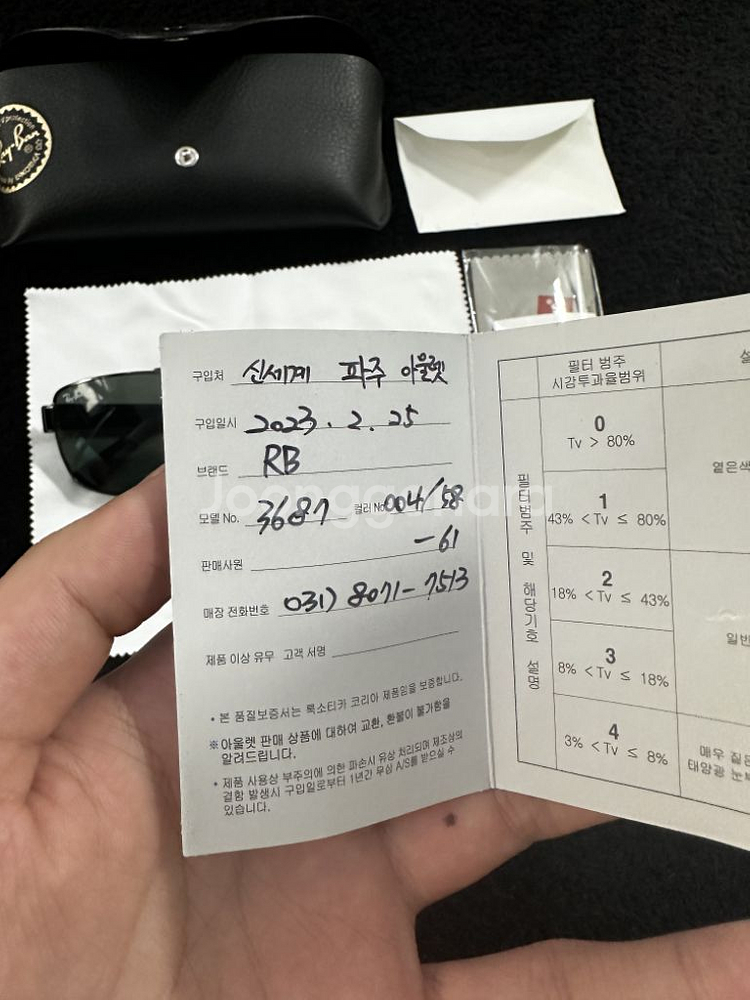 Ray-Ban
구입처 신세계 파주 아울렛
구입일시 2023. 2. 25
브랜드 RB
모델 No. 3687 컬러 No 004/58
-61
판매사원
매장 전화번호 031) 8071-7513
제품 이상 유무 고객 서명
• 본 품질보증서는 룩소티카 코리아 제품임을 보증합니다.
※ 아울렛 판매 상품에 대하여 교환, 환불이 불가함을
알려드립니다.
• 제품 사용상 부주의에 의한 파손시 유상 처리되며 제조상의
결함 발생시 구입일로부터 1년간 무상 A/S를 받으실 수
있습니다.
필터 범주
시감투과율범위
설
필터범주 및 해당기호 설명
0
Tv > 80%
옅은색
1
43% < Tv ≤ 80%
2
18% < Tv ≤ 43%
일반
3
8% < Tv ≤ 18%
4
3% < Tv ≤ 8%
매우 짙은
태양광 눈부
Joonggonara